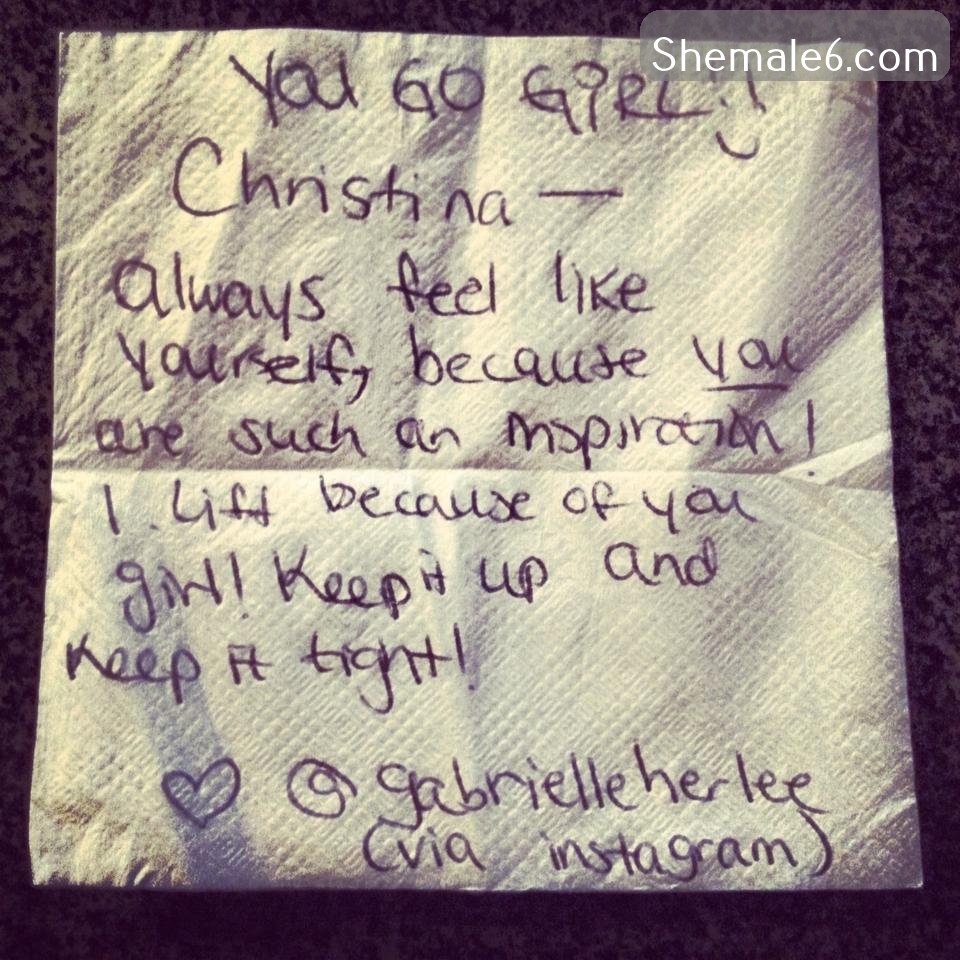 Shemale6.com
YOU GO GIRL!
Christina —
Always feel like
yourself, because you
are such an inspiration!
I lift because of you
girl! Keep it up and
keep it tight!
♡ @gabrielleherlee
(via instagram)